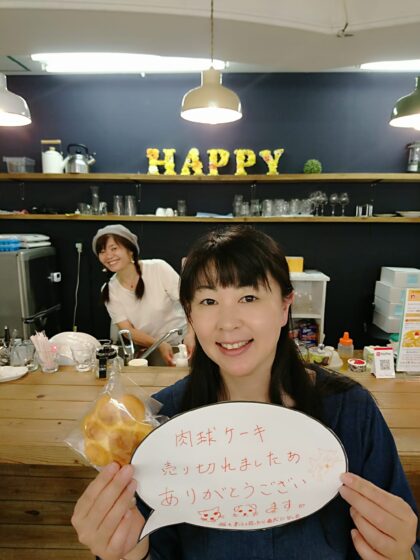 HAPPY
肉球ケーキ
売り切れましたぁ
ありがとうござい
ます